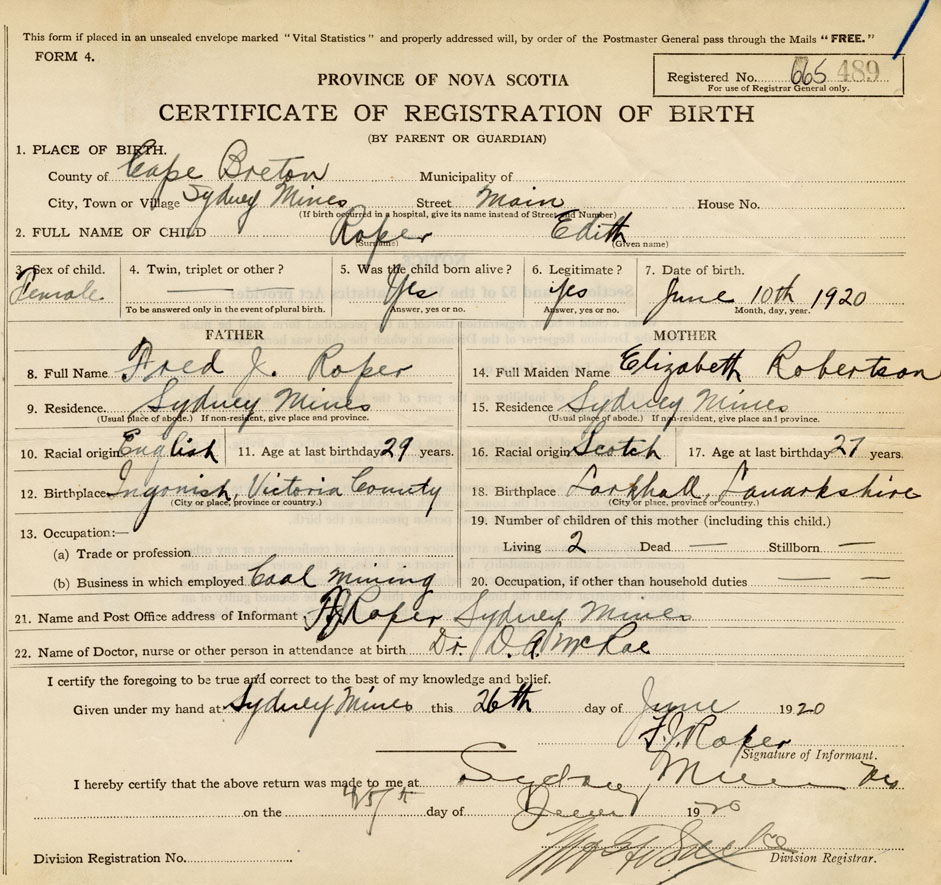 This form if placed in an unsealed envelope marked "Vital Statistics" and properly addressed will, by order of the Postmaster General pass through the Mails "FREE."
FORM 4.
Registered No. 665 489
For use of Registrar General only.
PROVINCE OF NOVA SCOTIA
CERTIFICATE OF REGISTRATION OF BIRTH
(BY PARENT OR GUARDIAN)
1. PLACE OF BIRTH.
County of Cape Breton Municipality of
City, Town or Village Sydney Mines Street Main House No.
(If birth occurred in a hospital, give its name instead of Street and Number)
2. FULL NAME OF CHILD Roper Edith
(Surname) (Given name)
3. Sex of child. 4. Twin, triplet or other? 5. Was the child born alive? 6. Legitimate? 7. Date of birth.
Female Yes Yes June 10th 1920
To be answered only in the event of plural birth. Answer, yes or no. Answer, yes or no. Month, day, year.
FATHER MOTHER
8. Full Name Fred J. Roper 14. Full Maiden Name Elizabeth Robertson
9. Residence. Sydney Mines 15. Residence Sydney Mines
(Usual place of abode.) If non-resident, give place and province. (Usual place of abode.) If non-resident, give place and province.
10. Racial origin English 11. Age at last birthday 29 years. 16. Racial origin Scotch 17. Age at last birthday 27 years.
12. Birthplace Ingonish, Victoria County 18. Birthplace Larkhall, Lanarkshire
(City or place, province or country.) (City or place, province or country.)
13. Occupation:— 19. Number of children of this mother (including this child.)
(a) Trade or profession Living 2 Dead — Stillborn —
(b) Business in which employed Coal Mining 20. Occupation, if other than household duties — —
21. Name and Post Office address of Informant FJ Roper Sydney Mines
22. Name of Doctor, nurse or other person in attendance at birth Dr. D. A. McRae
I certify the foregoing to be true and correct to the best of my knowledge and belief.
Given under my hand at Sydney Mines this 26th day of June 1920
F. J. Roper
Signature of Informant.
I hereby certify that the above return was made to me at Sydney Mines
on the day of 1920
Division Registration No. Division Registrar.